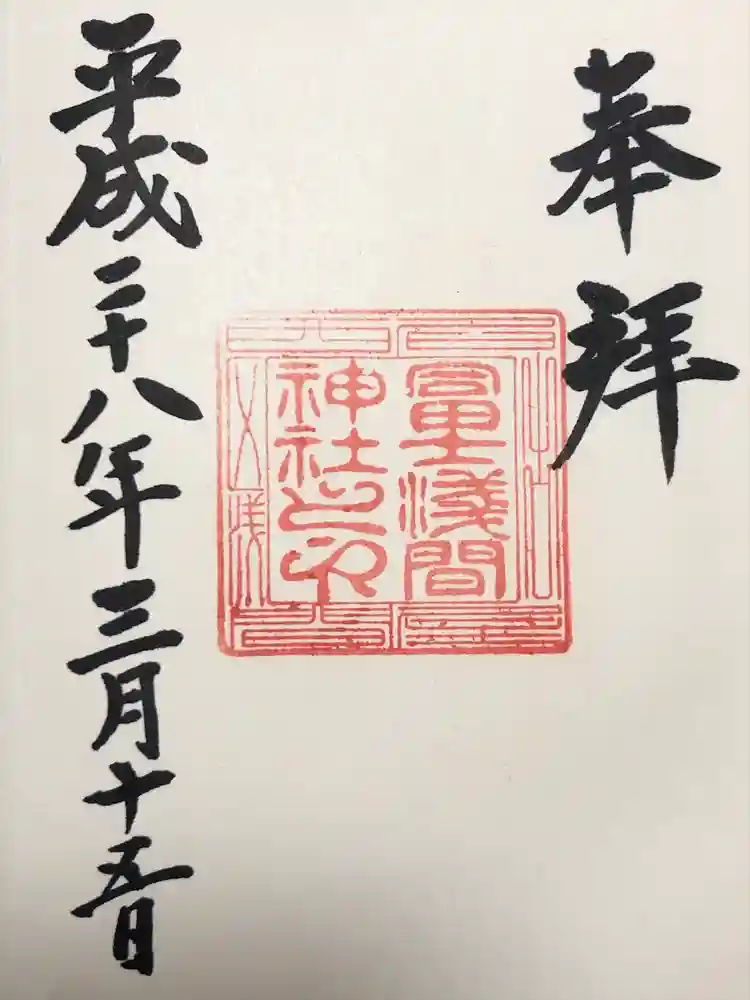 奉拝
冨士淺間
神社之印
平成二十八年三月十五日